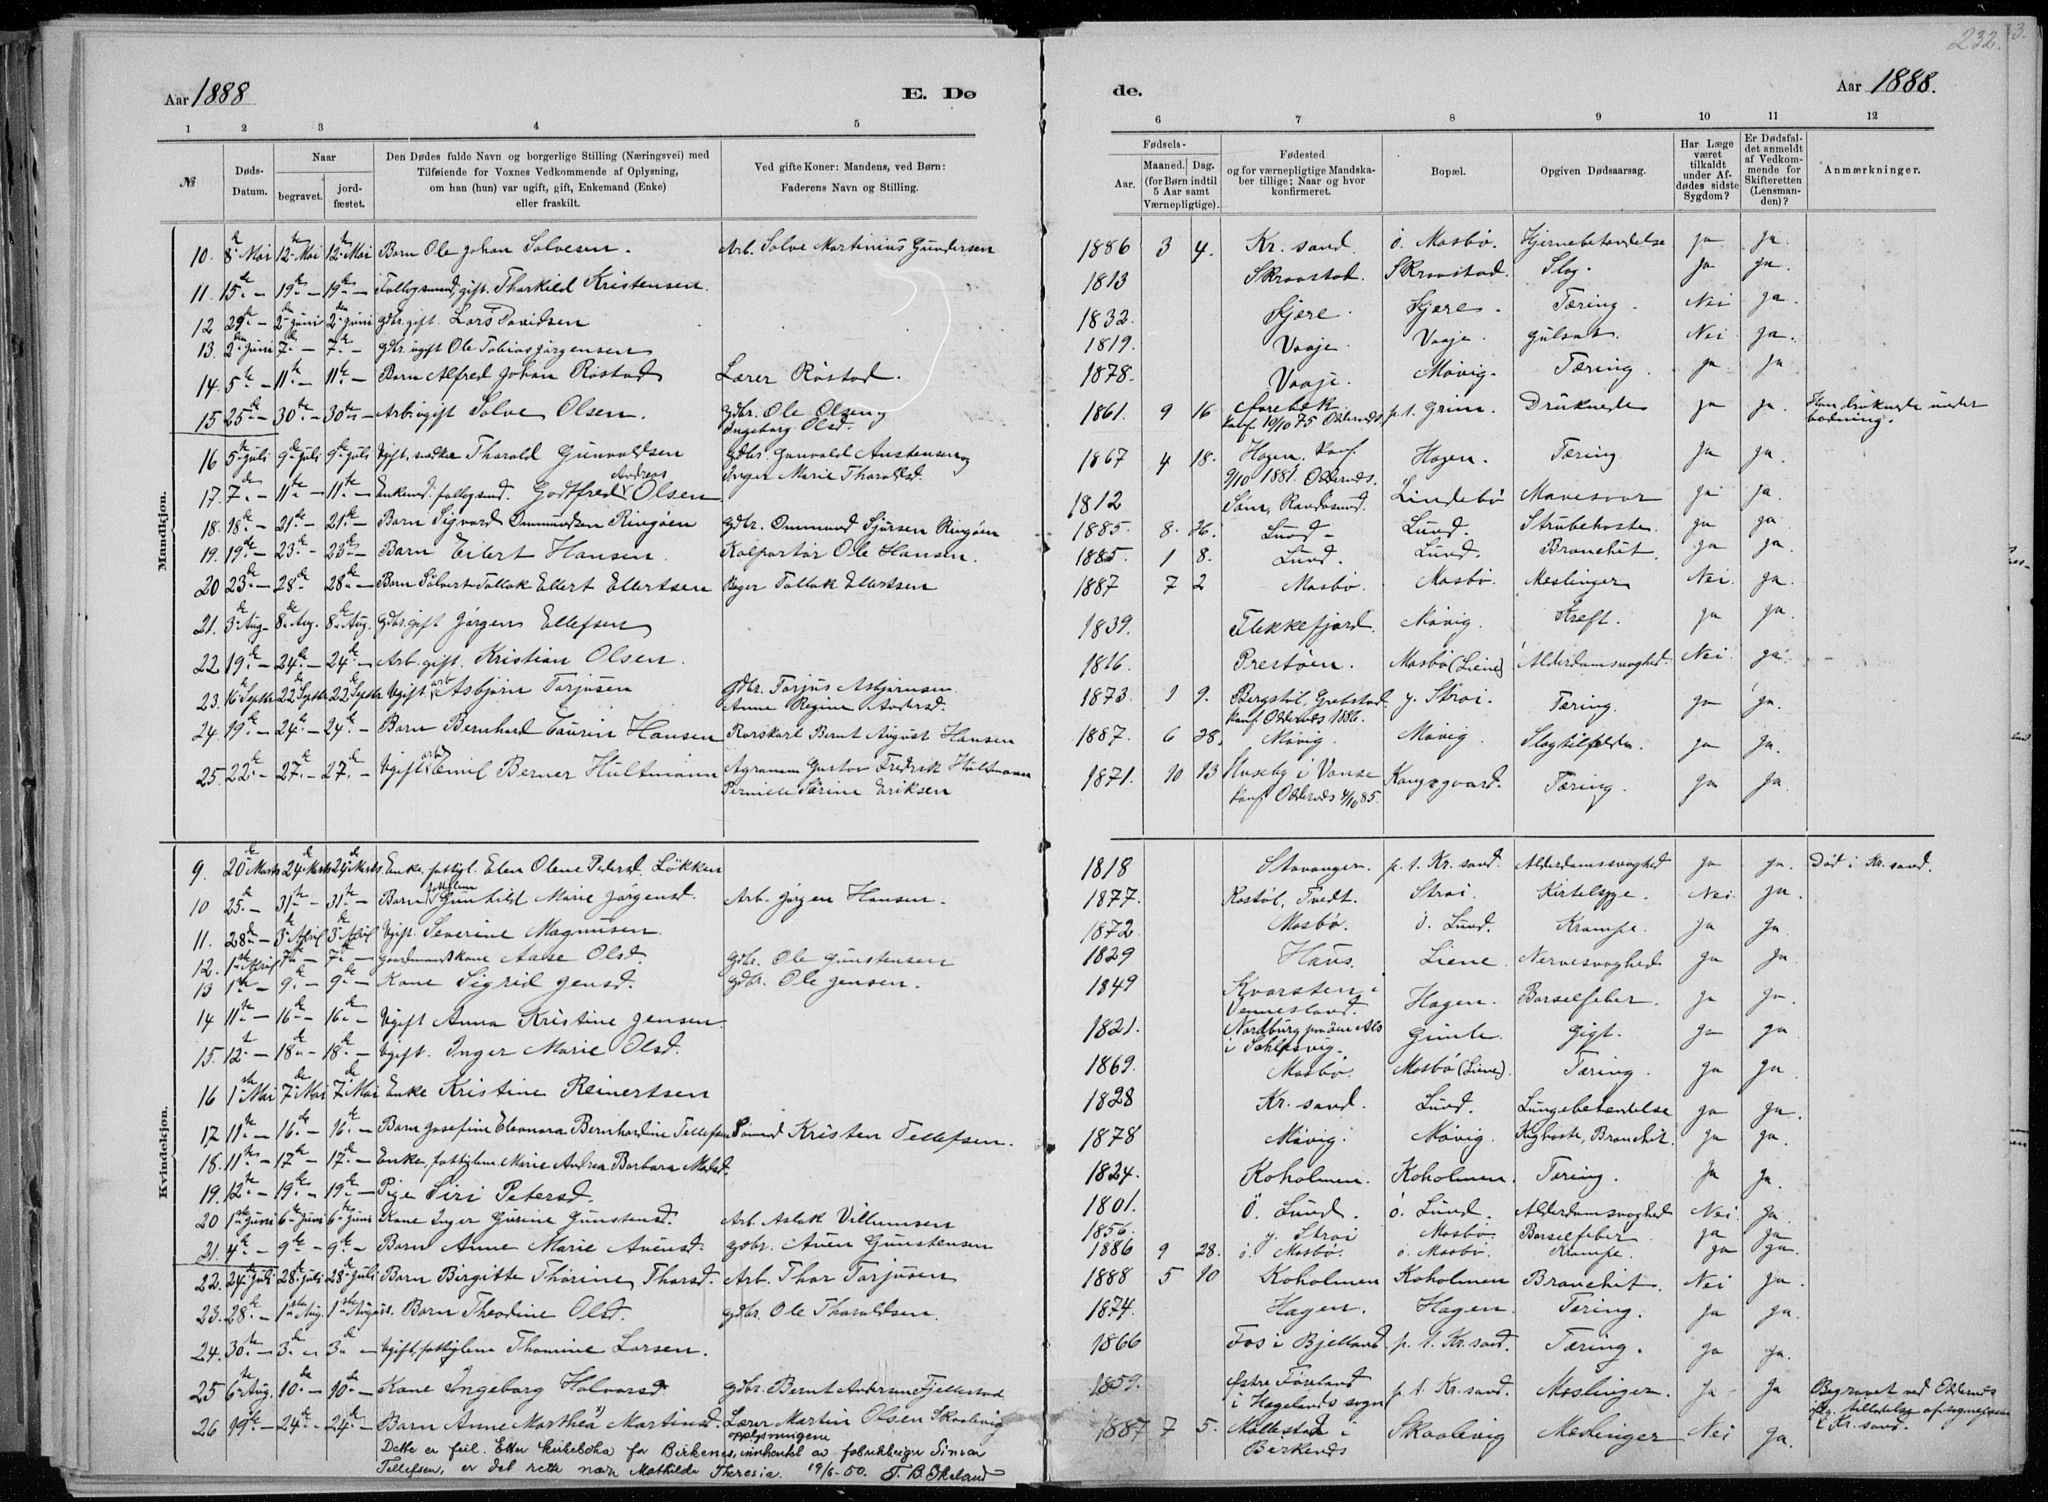 232.
3.
Aar 1888
E. Dø
de.
Aar 1888.
1 2 3 4 5
6 7 8 9 10 11 12
№
Døds-Datum.
Naar
begravet.
jord-fæstet.
Den Dødes fulde Navn og borgerlige Stilling (Næringsvei) med
Tilføiende for Voxnes Vedkommende af Oplysning,
om han (hun) var ugift, gift, Enkemand (Enke)
eller fraskilt.
Ved gifte Koner: Mandens, ved Børn:
Faderens Navn og Stilling.
Fødsels-
Aar.
Maaned.
Dag.
(for Børn indtil
5 Aar samt
Værnepligtige).
Fødested
og for værnepligtige Mandska-
ber tillige: Naar og hvor
konfirmeret.
Bopæl.
Opgiven Dødsaarsag.
Har Læge
været
tilkaldt
under Af-
dødes sidste
Sygdom?
Er Dødsfal-
det anmeldt
af Vedkom-
mende for
Skifteretten
(Lensman-
den)?
Anmærkninger.
Mandkjøn.
10. 8de Mai 12te Mai 12te Mai Barn Ole Johan Solvesen. Arb. Solve Martinius Gundersen 1886 3 4. Kr.sand. ö. Mosbö. Hjernebetændelse ja ja.
11. 15de – 19de – 19de – Fattigmand, gift. Thorkild Kristensen. 1813 Skraastad. Skraastad. Slag. ja ja.
12 29de – 2den Juni 2den Juni gdbr. gift. Lars Davidsen 1832. Kjære. Kjære. Tæring. Nei ja.
13. 2den Juni 7de – 7de – gdbr. ugift Ole Tobias Jørgensen 1819. Vaaje. Vaaje. gulsot. Nei ja.
14. 5te – 11te – 11te – Barn Alfred Johan Röstad Lærer Röstad. 1878. Vaaje. Movig. Tæring. ja. ja
15 25de – 30te – 30te – Arb. ugift Solve Olsen. gdbr. Ole Olsen og
Ingeborg Olsd. 1861. 9 16 konf. 10/10 75 Oddernes p. t. Grim. Druknede ja ja. Han druknede under
badning.
16 5te Juli 9de Juli 9de Juli Ugift, snedker Tharald Gunvaldsen Gdbr. Gunvald Austensen og
Inger Marie Tharaldsd. 1867 4 18. Hagen. konf.
9/10 1881. Oddernes. Hagen. Tæring ja ja.
17. 7de – 11te – 11te – Enkemd. fattigmd. Godtfred Andreas Olsen 1812 Som, Randøsund. Lindebö Mavesaar ja ja.
18. 18de – 21de – 21de – Barn Sigvard Ommundsen Ringöen gdbr. Ommund Sjursen Ringöen 1885. 8. 26. Lund – Lund. Strubehoste. ja ja
19. 19de – 23de – 23de – Barn Eilert Hansen. Kolportör Ole Hansen. 1885. 1 8. Lund. Lund. Bronchit. ja ja.
20 23de – 28de – 28de – Barn Sölvert Tallak Ellert Ellertsen Bager Tallak Ellertsen 1887 7 2 Mosbö. Mosbö. Meslinger Nei. ja.
21. 3de Aug. 8de Aug. 8de Aug. gdbr. gift Jörgen Ellefsen 1839. Flekkefjord. Movig. Kreft. ja ja.
22. 19de – 24de – 24de – Arb. gift. Kristian Olsen. 1816. Prestöen. Mosbö (Liene) Alderdomssvaghed. Nei. ja.
23. 16de Septbr 22de Septbr 22de Septbr Ugift arb. Asbjörn Tarjusen gdbr. Tarjus Asbjörnsen.
Anne Regine Andersd. 1873. 1 9. Bergstöl, Grebstad
konf. Oddernes 1886. y. Strai. Tæring. ja ja.
24. 19de – 24de – 24de – Barn Bernhard Laurin Hansen Karskarl Bernt August Hansen 1887. 6 28. Movig. Movig. Slagtilfælde. ja ja.
25. 22de – 27de – 27de – Ugift arb. Emil Berner Hultmann Agronom Gustav Fredrik Hultmann
Pernille Tarine Eriksen 1871. 10 13 Huseby i Vanse
konf. Oddernes 4/10 85. Kongsgaard. Tæring. ja ja.
Kvindekjøn.
9. 20de Marts 24de Marts 24de Marts Enke, fattigl. Elen Olene Pedersd. Lökken 1818 Stavanger. p. t. Kr.sand. Alderdomssvaghed ja ja. Död i Kr.sand.
10 25de – 31te – 31te – Barn Gunhild Marie Jörgensd. Arb. Jörgen Hansen. 1877. Rostöl, Tvedt. Strai. Kirtelsyge. Nei ja.
11. 28de – 3de April 3de April Ugift. Severine Magnusen. 1872. Mosbö. ö. Lund. Krampe. ja ja
12. 1ste April 7de – 7de – gaardmandskone Aase Olsd. gdbr. Ole Gunstensen 1829 Haus. Liene. Nervesvaghed ja ja.
13 1ste – 9de – 9de – Kone Sigrid Jensd. gdbr. Ole Jensen. 1849 Kvarsten i
Vennesland. Hagen. Barselfeber. ja ja.
14 11te – 16de – 16de – Ugift Anna Kristine Jensen. 1821. Nordburg paa öen Als
i Schlesvig. Gimle. Gigt. ja ja
15. 12te – 18de – 18de – Ugift. Inger Marie Olsd. 1869. Mosbö. Mosbö (Liene). Tæring. ja ja
16 1ste Mai 7de Mai 7de Mai Enke Kristine Reinertsen 1828 Kr.sand. Lund. Lungebetændelse ja ja.
17 11te – 16de – 16de – Barn Josefine Eleonora Bernhardine Tellefsen Sömand Kristen Tellefsen. 1878 Movig. Movig. Kighoste, Bronchit. ja ja.
18. 11te – 17de – 17de – Enke, fattiglem Marie Andrea Barbara Madsd. 1824. Koholmen. Koholmen. Tæring. ja ja.
19. 12te – 19de – 19de – Pige Siri Petersd. 1801. Ö. Lund. ö. Lund. Alderdomssvaghed Nei. ja
20 1ste Juni 6te Juni 6te Juni Kone Inger Gurine Gunstensd. Arb. Aslak Villumsen 1856. y. Strai Mosbö. Barselfeber ja ja
21. 4de – 9de – 9de – Barn Anne Marie Auensd. gdbr. Auen Gunstensen 1886 9 28. ö. Mosbö. ö. Mosbö. Krampe. ja ja.
22. 24de Juli 28de Juli 28de Juli Barn Birgitte Thorine Thorsd. Arb. Thor Tarjusen 1888 5 10 Koholmen Koholmen Bronchit. Nei ja.
23. 28de – 1ste Aug. 1ste August. Barn Theodine Olsd. gdbr. Ole Tharaldsen. 1874. Hagen. Hagen. Tæring. ja ja.
24. 30te – 3de – 3de – Ugift, fattiglem Thomine Larsen. 1866 Fos i Bjelland p. t. Kr.sand. Tæring. ja ja.
25 6te Aug. 10de – 10de – Kone Ingeborg Halvorsd. gdbr. Bernt Andersen Fjellestad 1859. Østre Föreland
i Hægelands sogn p. t. Kr.sand. Meslinger. ja ja Begravet ved Oddernes
i Kr.sand.
26 19de – 24de – 24de – Barn Anne Marthea 1) Martinsd. Lærer Martin Olsen Skaalevig 1887 7 5. Mollestad i
Birkenes Skaalevig Meslinger Nei ja.
1) Dette er feil. Etter kirkeboka for Birkenes, opplysningene innhentet av fabrikkeier Simon
Tellefsen, er det rette navn Mathilde Theresia. 19/6-50. T. B. Øheland